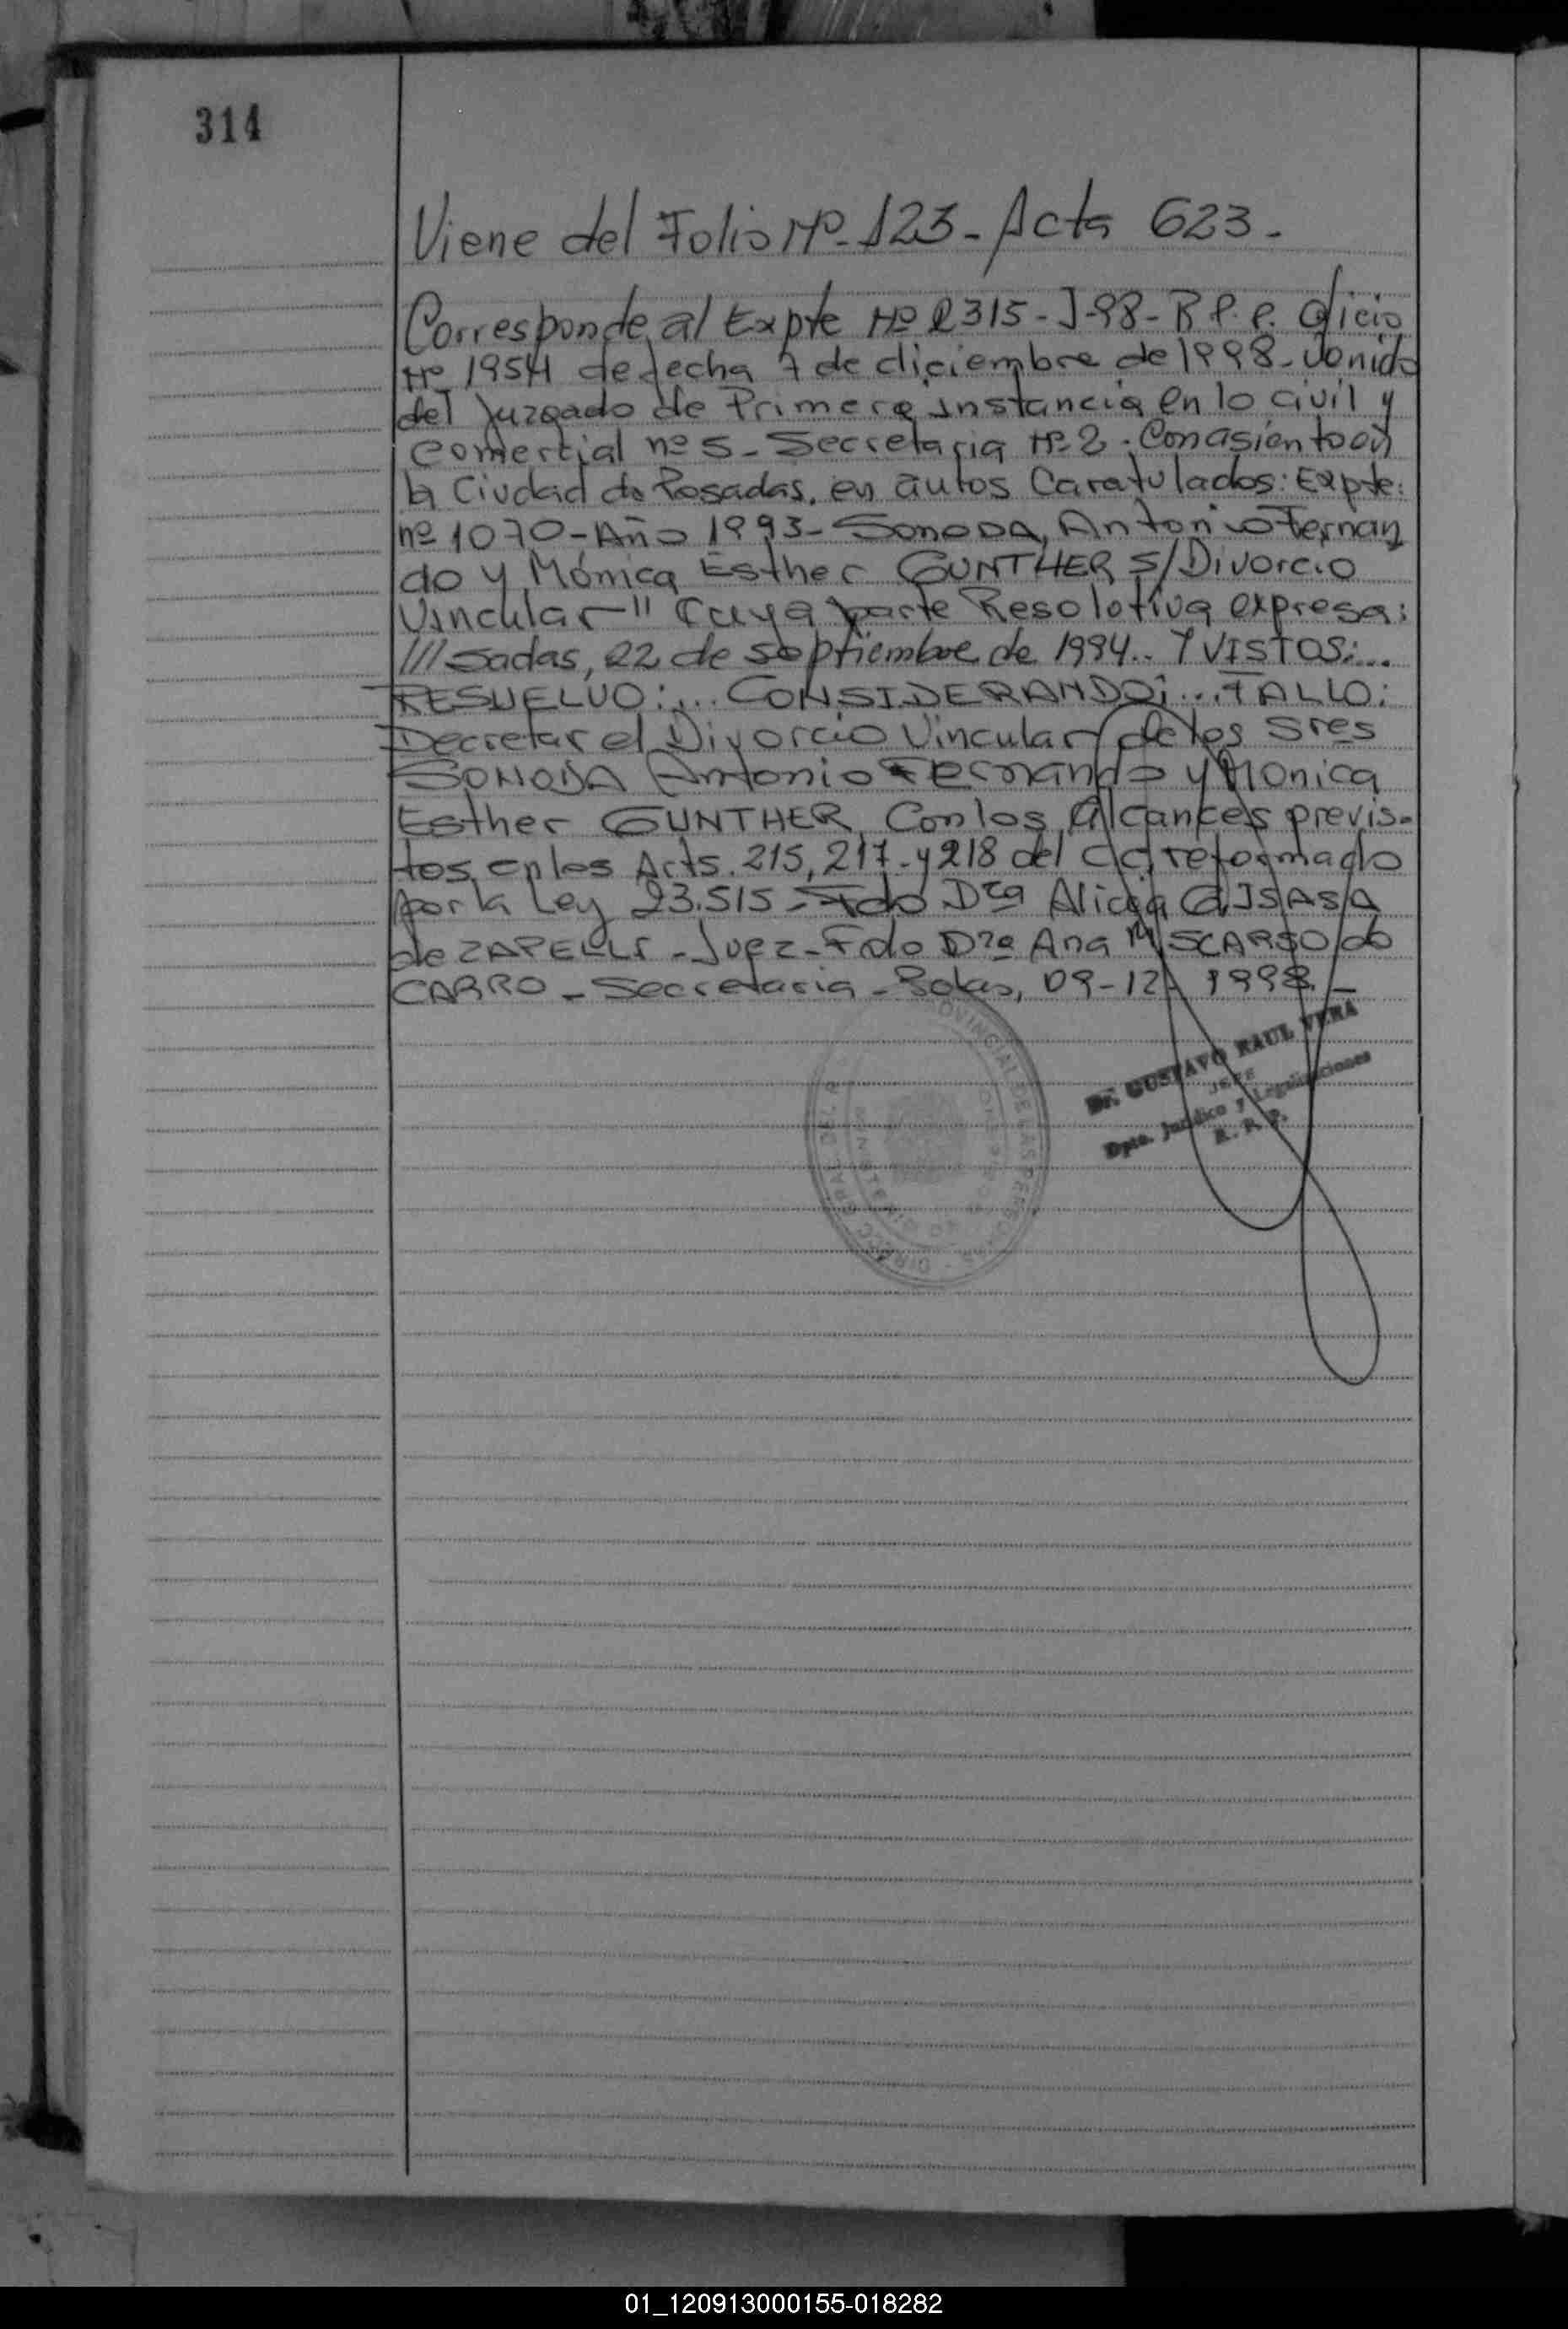 314
Viene del Folio Nº-123- Acta 623-
Corresponde al Expte Nº 2315-J-98-R.P.P. Oficio
Nº 1954 de fecha 7 de diciembre de 1998- Venido
del Juzgado de Primera Instancia en lo civil y
Comercial nº 5- Secretaria Nº 2. Con asiento en
la Ciudad de Posadas. en autos Caratulados: Expte:
nº 1070-Año 1993- SONODA, Antonio Fernan
do y Mónica Esther GUNTHER S/Divorcio
Vincular" Cuya parte Resolotiva expresa:
///sadas, 22 de septiembre de 1994.. Y VISTOS:...
RESUELVO:... CONSIDERANDO:... FALLO:
Decretar el Divorcio Vincular de los Sres
SONODA Antonio Fernando y Monica
Esther GUNTHER, Con los Alcances previs-
tos en los Arts. 215, 217- y 218 del CC reformado
por la Ley 23.515- Fdo Dra Alicia G. ISASA
de ZAPELLI - Juez- Fdo Dra Ana M SCARSO de
CARRO - Secretaria - Pdas, 09-12- 1998. -
Dr. GUSTAVO RAUL VERA
JEFE
Dpto. Jurídico y Legalizaciones
R. P. P.
DIREC. GRAL. DEL R. PROVINCIAL DE LAS PERSONAS
MINISTERIO DE GOBIERNO
01_120913000155-018282